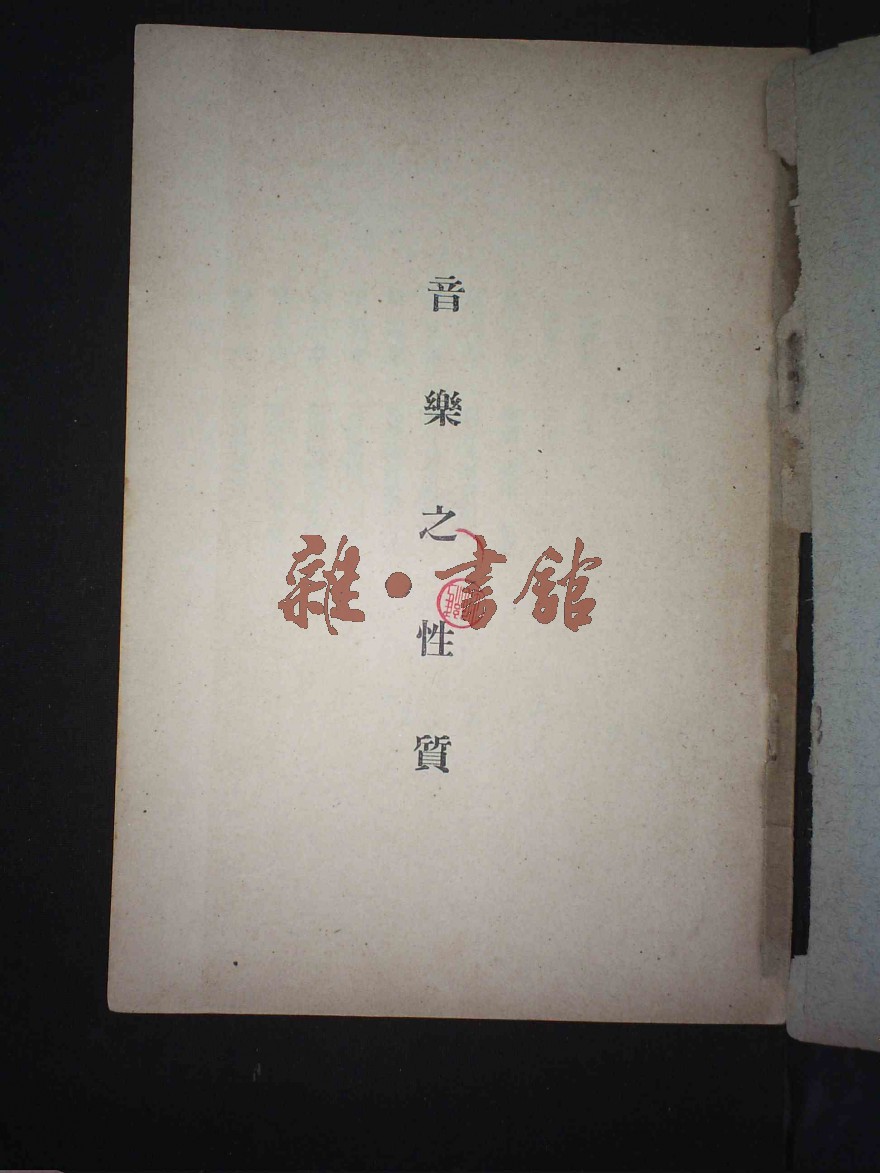 音樂之性質
雜·書館